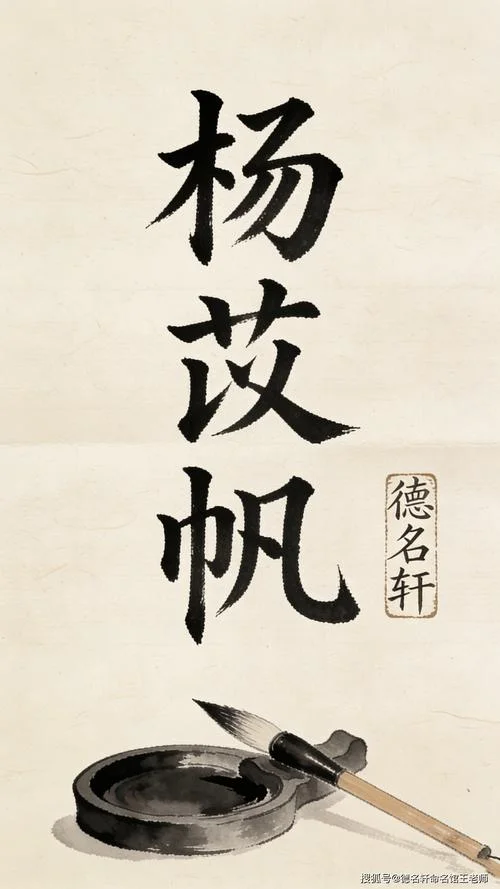 杨苡帆
德名轩
搜狐号@德名轩命名馆王老师